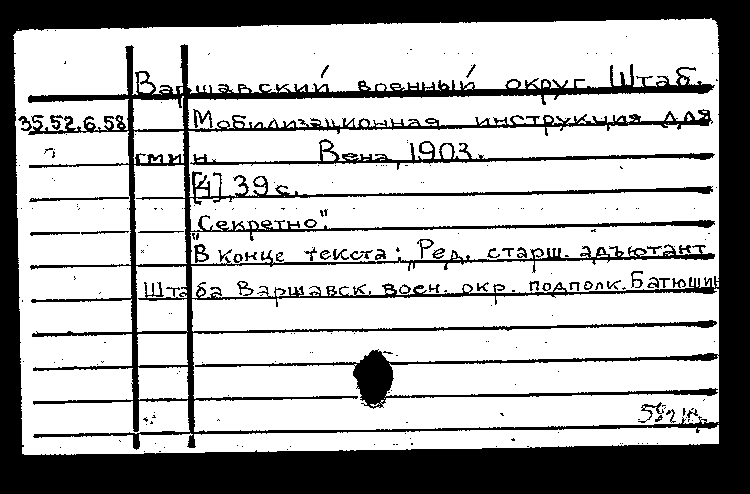 Варшавский военный округ. Штаб.
35.52.6.58 Мобилизационная инструкция для
гмин. Вена, 1903.
[4], 39 с.
"Секретно".
В конце текста: "Ред. старш. адъютант
Штаба Варшавск. воен. окр. подполк. Батюшин